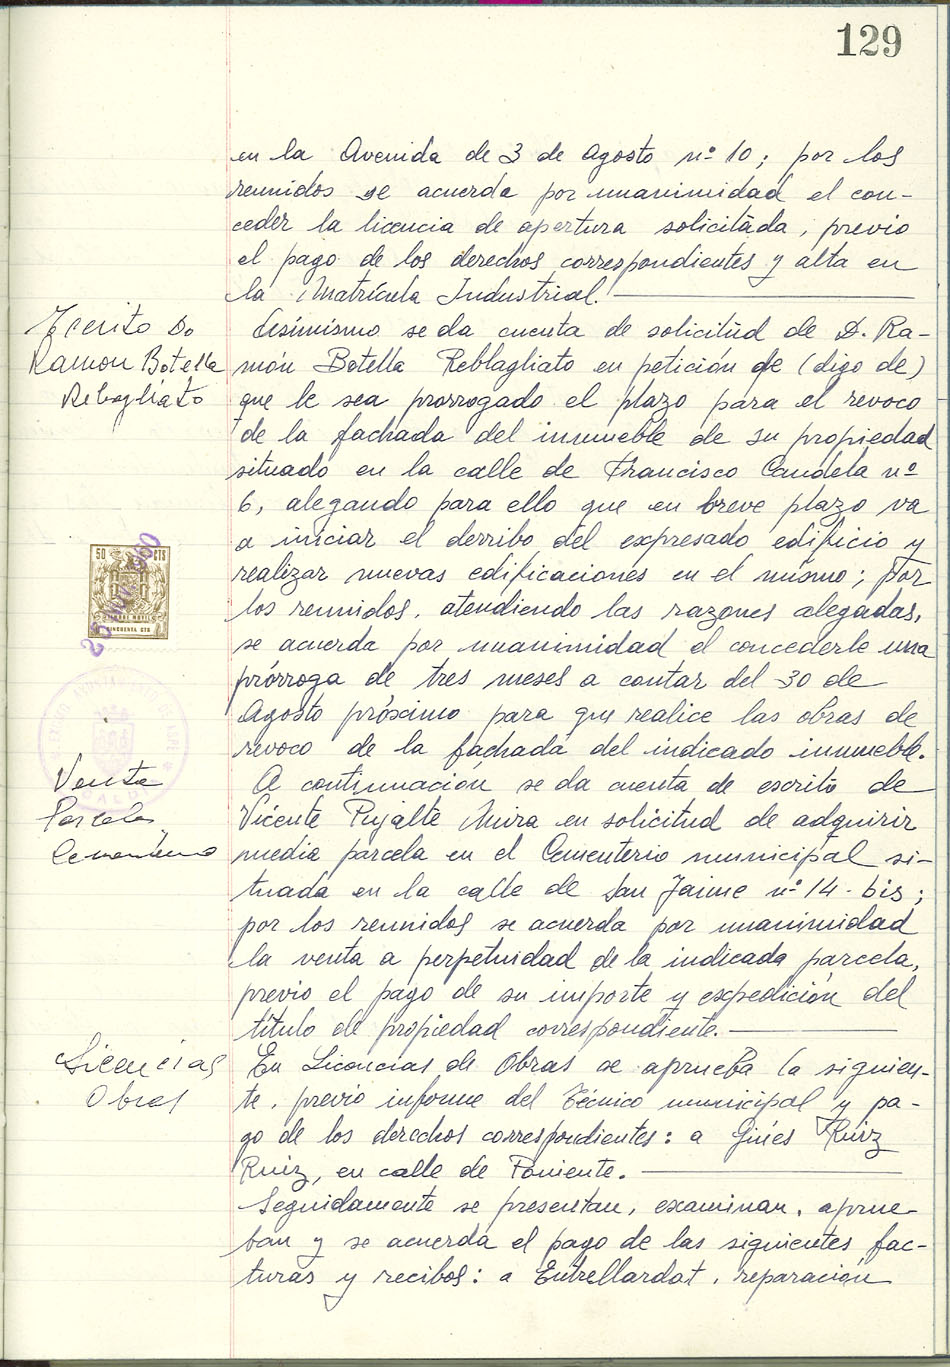 129
en la Avenida de 3 de Agosto nº 10; por los
reunidos se acuerda por unanimidad el con-
ceder la licencia de apertura solicitada, previo
el pago de los derechos correspondientes y alta en
la Matrícula Industrial.
Escrito Do
Ramon Botella
Rebagliato
Asímismo se da cuenta de solicitud de D. Ra-
món Botella Reblagliato en petición de (digo de)
que le sea prorrogado el plazo para el revoco
de la fachada del inmueble de su propiedad
situado en la calle de Francisco Candela nº
6, alegando para ello que en breve plazo va
a iniciar el derribo del expresado edificio y
realizar nuevas edificaciones en el mismo; por
los reunidos, atendiendo las razones alegadas,
se acuerda por unanimidad el concederle una
prórroga de tres meses a contar del 30 de
Agosto próximo para que realice las obras de
revoco de la fachada del indicado inmueble.
50 CTS
CINCUENTA CTS
Venta
Parcela
Cementerio
A continuación se da cuenta de escrito de
Vicente Pujalte Mira en solicitud de adquirir
media parcela en el Cementerio municipal si-
tuada en la calle de San Jaime nº 14 - bis;
por los reunidos se acuerda por unanimidad
la venta a perpetuidad de la indicada parcela,
previo el pago de su importe y expedición del
título de propiedad correspondiente.
Licencias
Obras
En Licencias de Obras se aprueba la siguien-
te, previo informe del Técnico municipal y pa-
go de los derechos correspondientes: a Ginés Ruiz
Ruiz, en calle de Poniente.
Seguidamente se presentan, examinan, aprue-
ban y se acuerda el pago de las siguientes fac-
turas y recibos: a Entrellardat, reparación